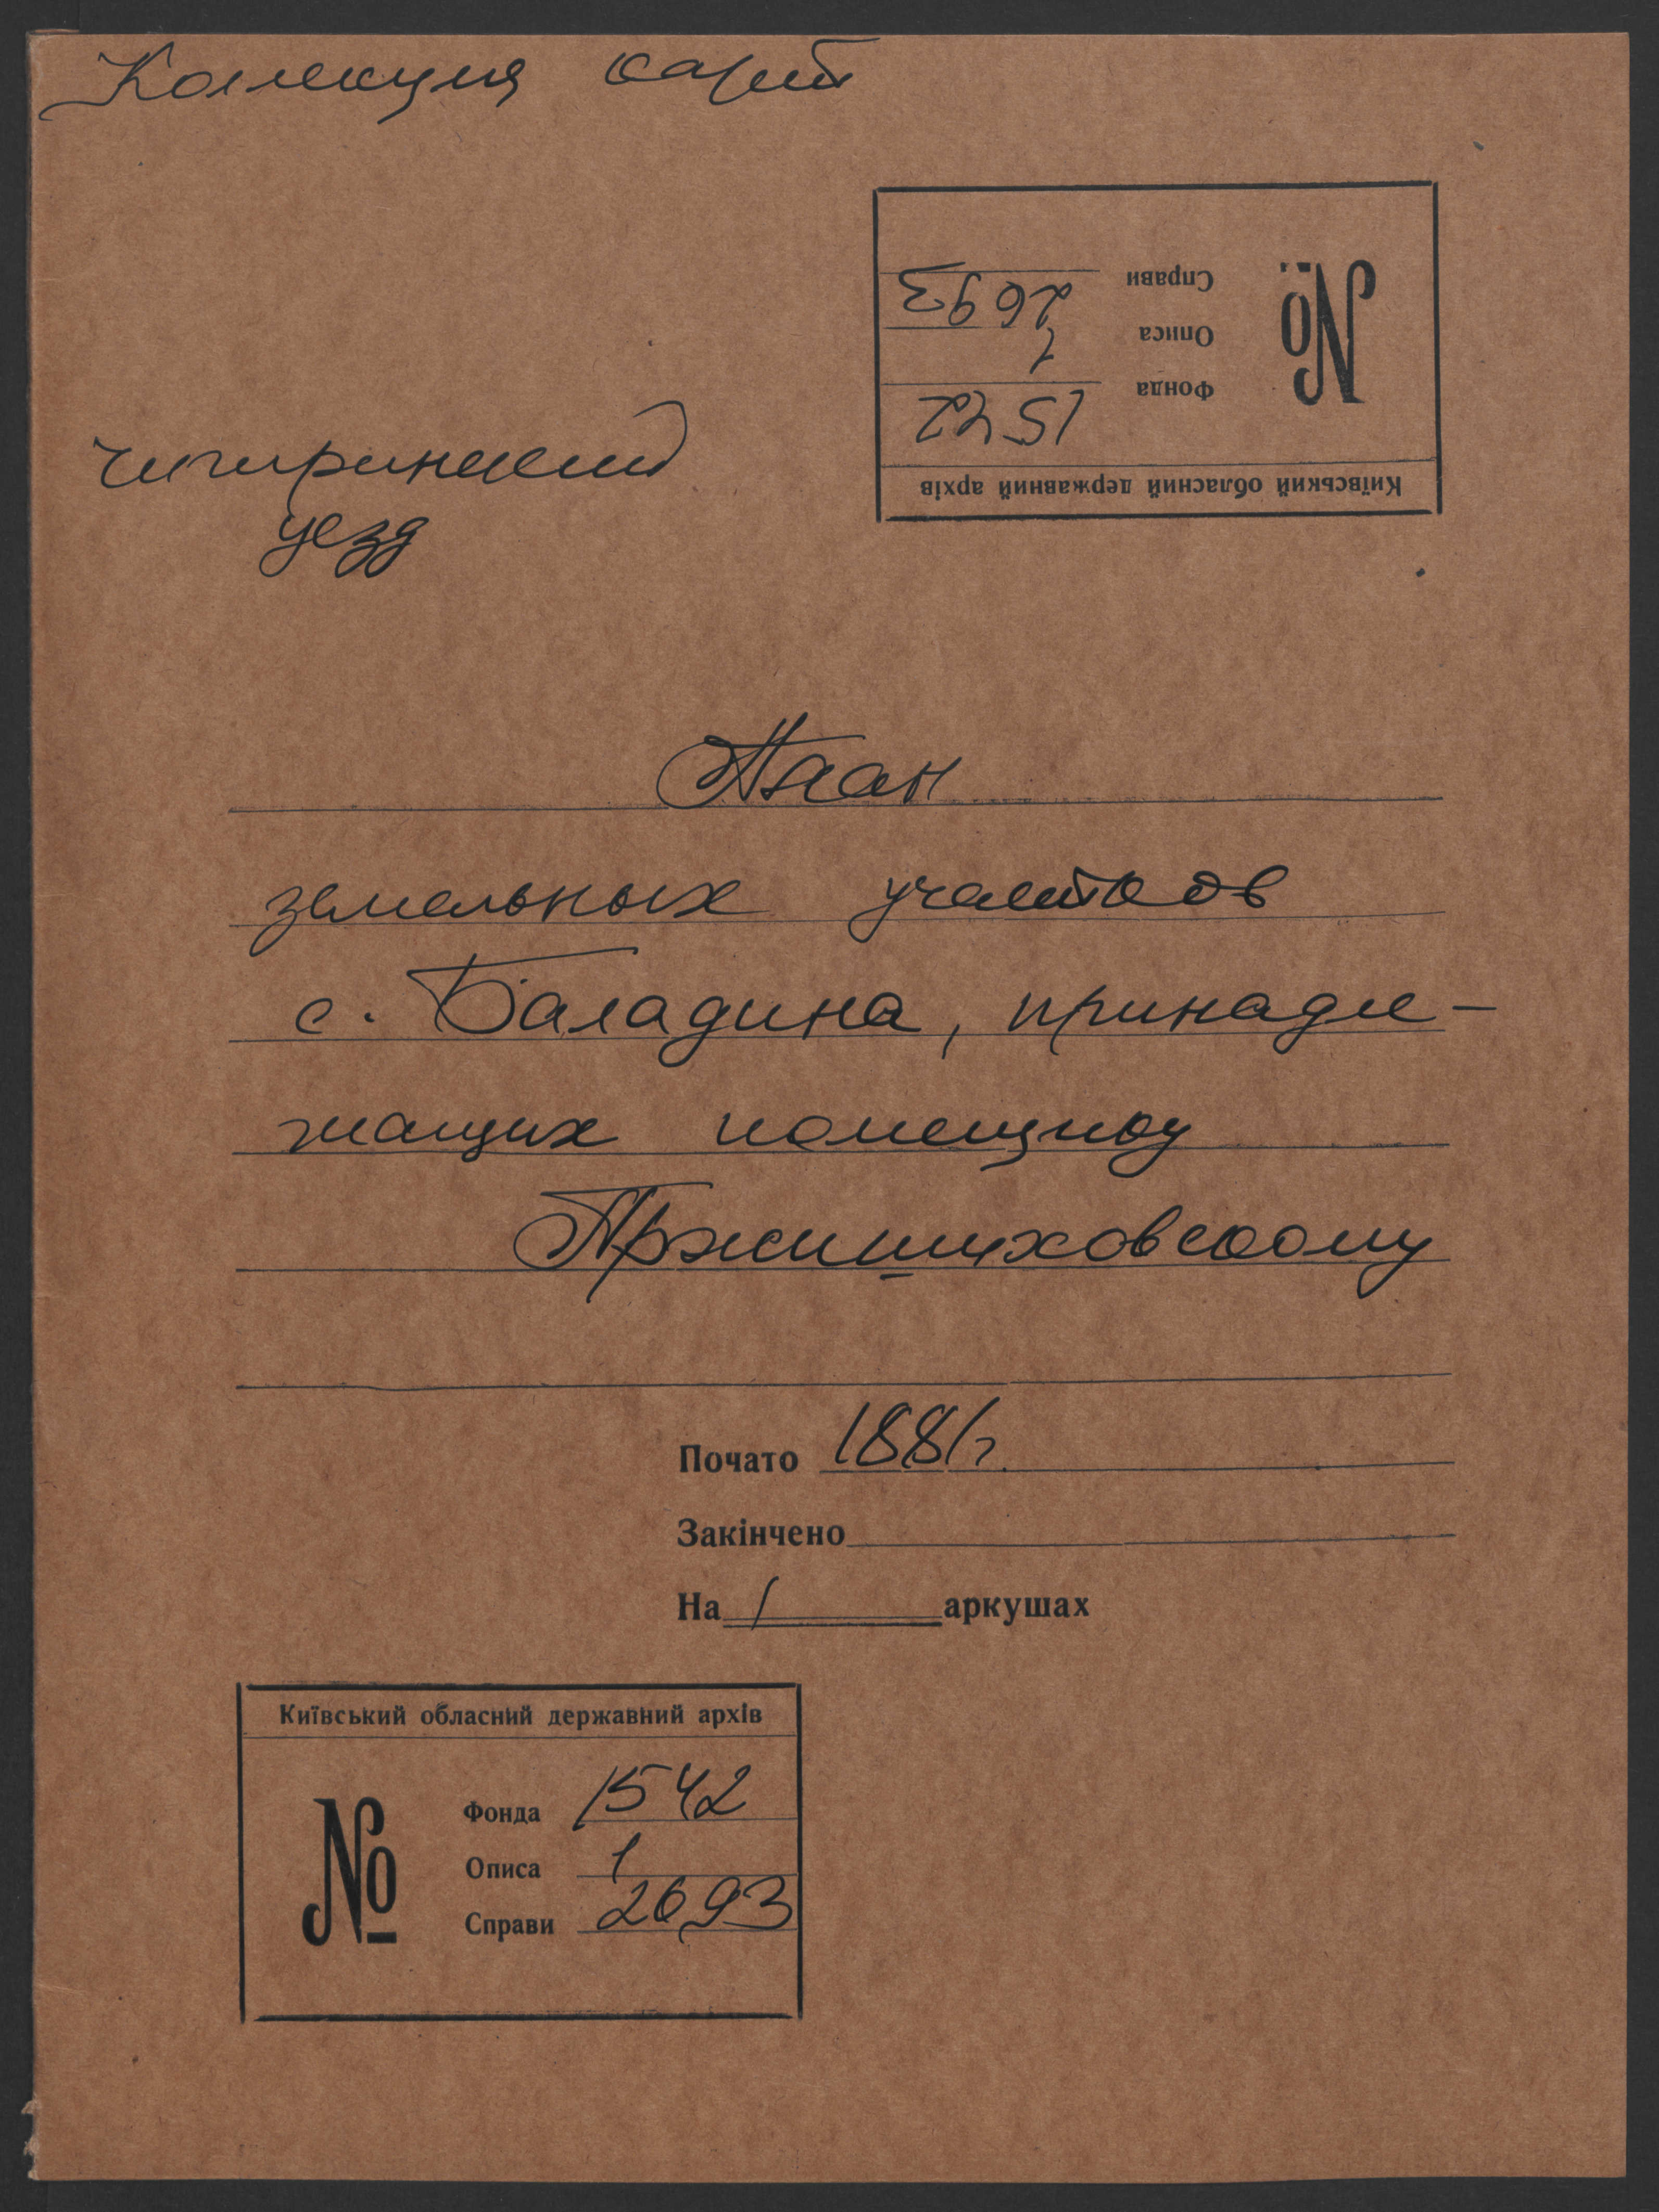 Коллекция карт
Справи 2693
Описа 1
Фонда 1542
№
Київський обласний державний архів
Чигиринский
уезд
План
земельных участков
с. Баладина, принадле-
жащих помещику
Пржишиховскому
Почато 1881г.
Закінчено
На 1 аркушах
Київський обласний державний архів
№
Фонда 1542
Описа 1
Справи 2693